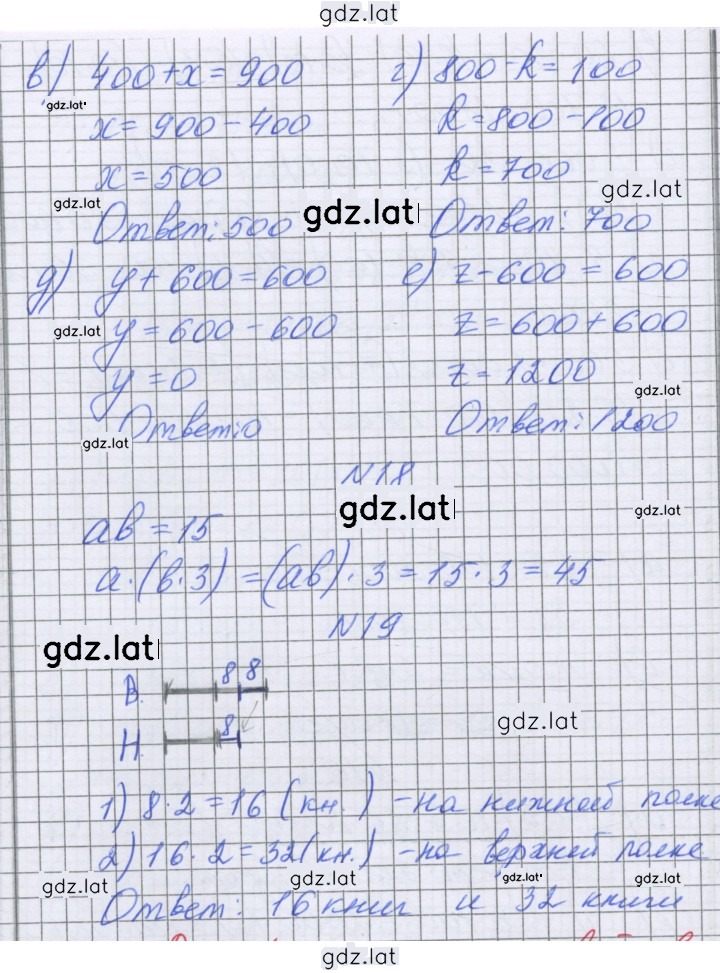 gdz.lat
в) 400+x=900 г) 800-k=100
gdz.lat
x=900-400 k=800-100
x=500 k=700
gdz.lat gdz.lat gdz.lat
Ответ: 500 Ответ: 700
д) y+600=600 е) z-600=600
gdz.lat
y=600-600 z=600+600
y=0 z=1200
gdz.lat
Ответ: 0 Ответ: 1200
gdz.lat
N18
gdz.lat gdz.lat
ab=15
a·(b·3)=(ab)·3=15·3=45
N19
gdz.lat
8 8
В.
gdz.lat
8
Н.
1) 8·2=16 (кн.) -на нижней полке
2) 16·2=32(кн.) -на верхней полке
gdz.lat gdz.lat gdz.lat gdz.lat
Ответ: 16 книг и 32 книги
gdz.lat